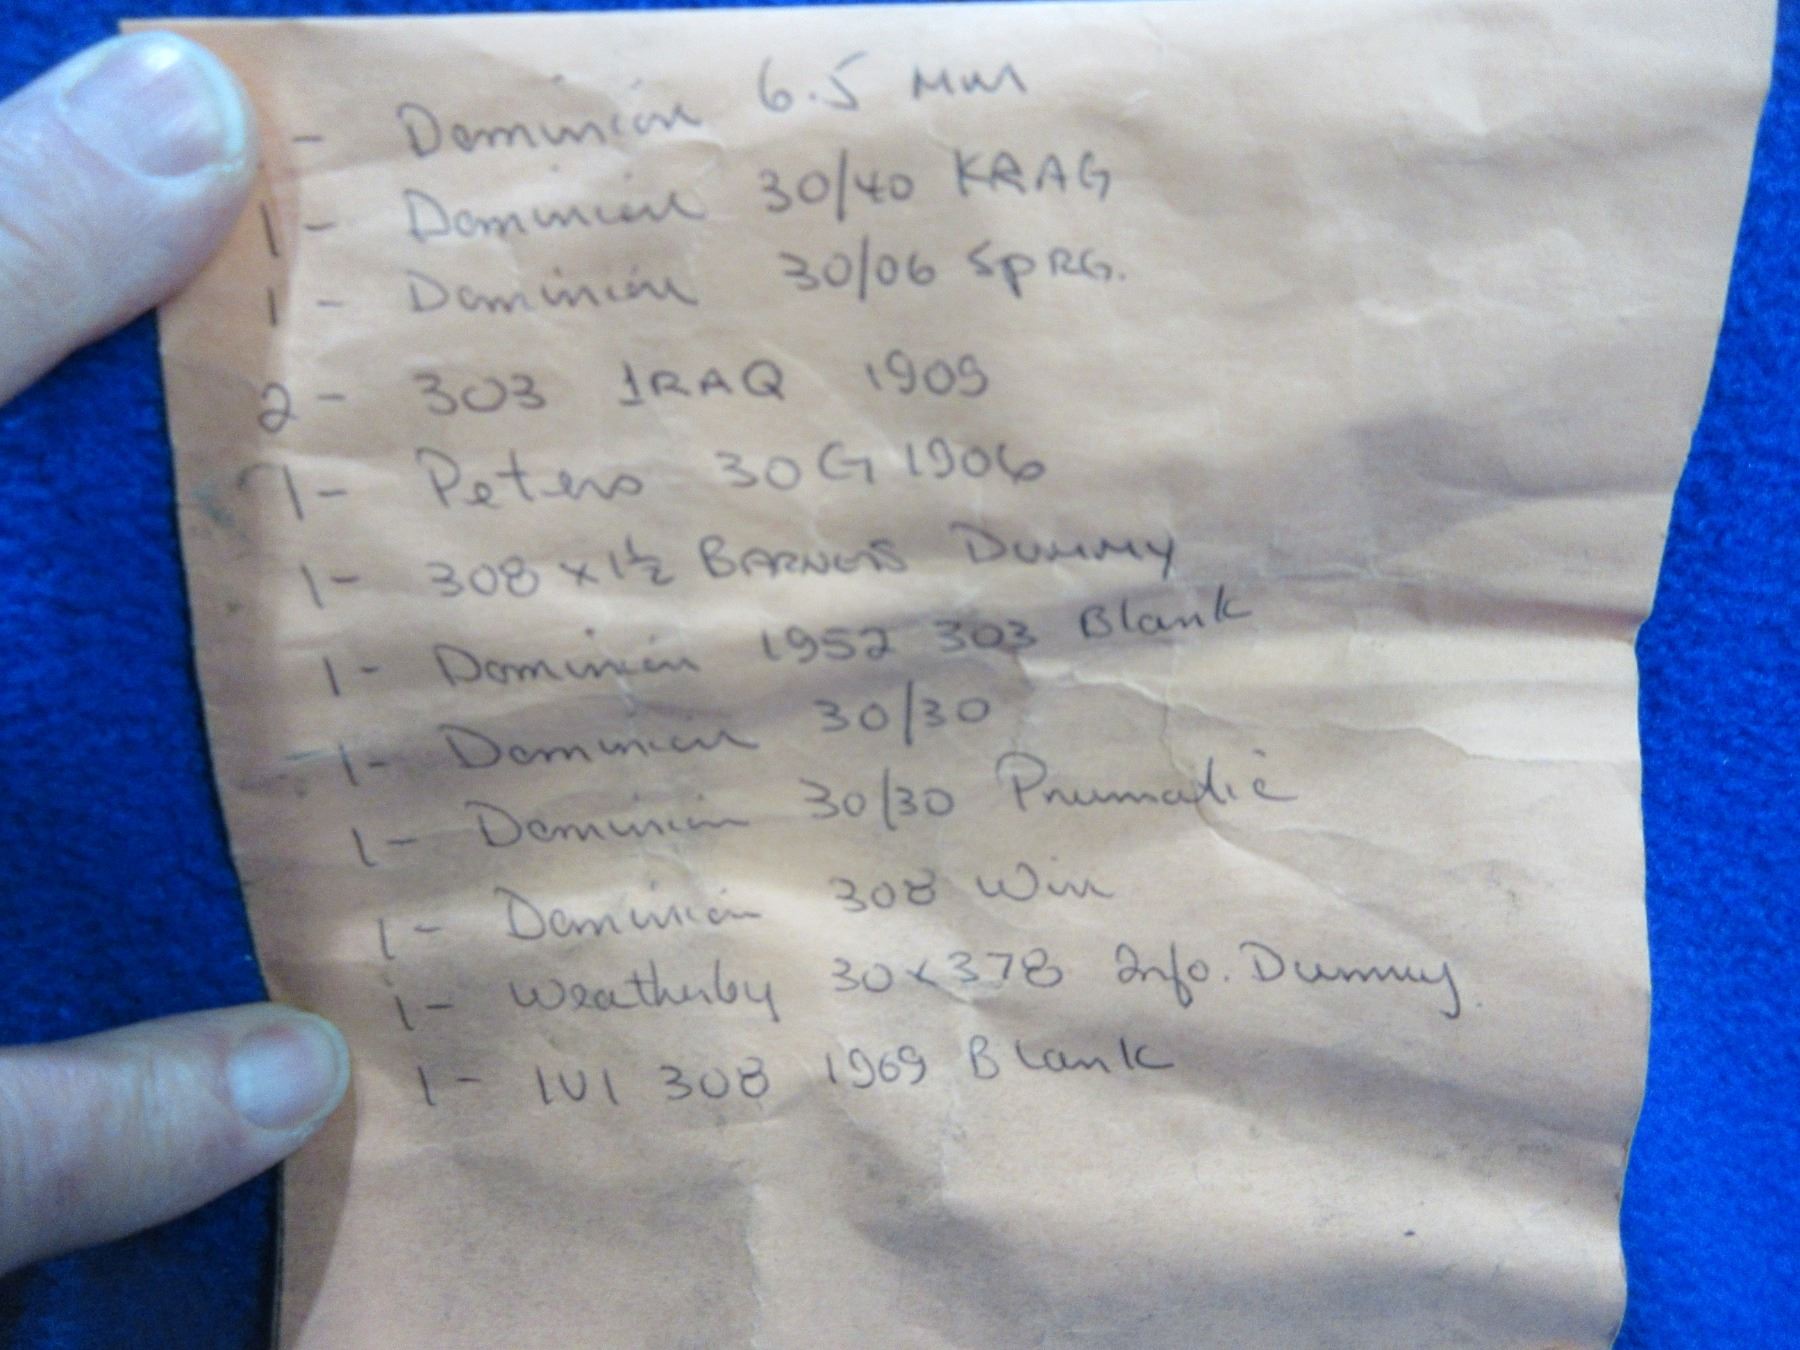 1 - Dominion 6.5 MM
1 - Dominion 30/40 KRAG
1 - Dominion 30/06 SpRG.
2 - 303 IRAQ 1909
1 - Peters 30 G 1906
1 - 308 x 1½ BARNES DUMMY
1 - Dominion 1952 303 Blank
1 - Dominion 30/30
1 - Dominion 30/30 Pnumatic
1 - Dominion 308 Win
1 - Weatherby 30x378 Info. Dummy.
1 - IVI 308 1969 Blank